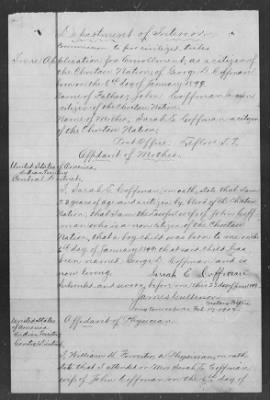 Department of Interior.
Commission to five civilized tribes
In re Application for Enrollment, as a citizen of
the Choctaw Nation, of George D. Coffman
born on the 6th day of January 1899.
Name of Father, John Coffman a non
citizen of the Choctaw Nation.
Name of Mother, Sarah E. Coffman a citizen
of the Choctaw Nation.
Post Office
Affidavit of Mother.
United States of America,
Indian Territory
Central District.
I, Sarah E. Coffman, on oath, state that I am
years of age and a citizen by blood of the Choctaw
Nation, that I am the lawful wife of John Coff-
man who is a non citizen of the Choctaw
Nation, that a boy child was born to me on the
6th day of January 1899, that said child has
been named George D. Coffman and is
now living.
Sarah E. Coffman
Subscribed and sworn before me this day of June 1899
James
Notary Public
My Commission
United States
of America
Indian Territory
Central District
Affidavit of Physician.
I, William H. a Physician, on oath
state that I attended on Mrs Sarah E. Coffman
wife of John Coffman on the 6th day of